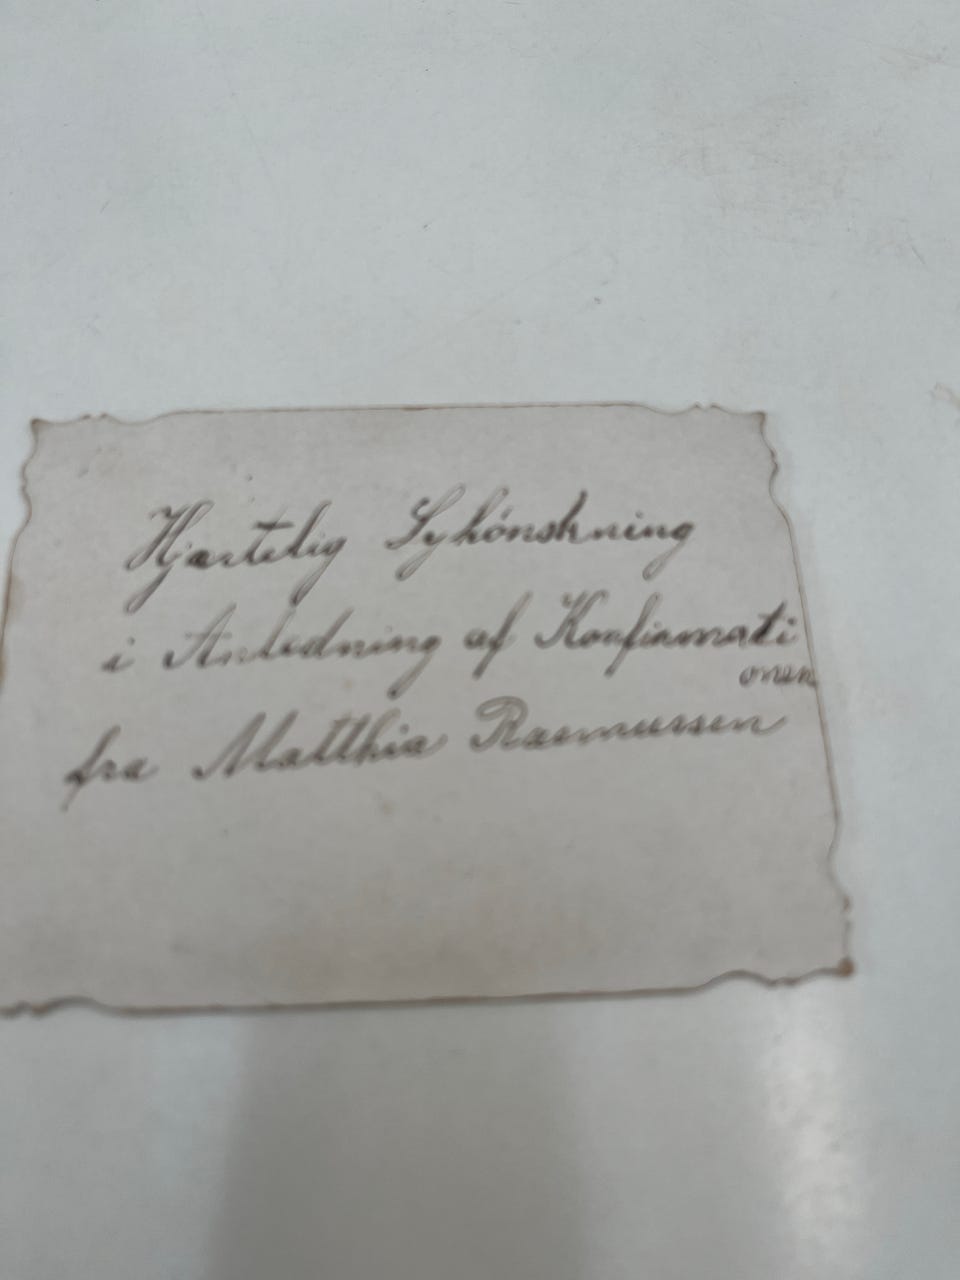 Hjærtelig Lykönskning
i Anledning af Konfirmati
onen
fra Matthia Rasmussen